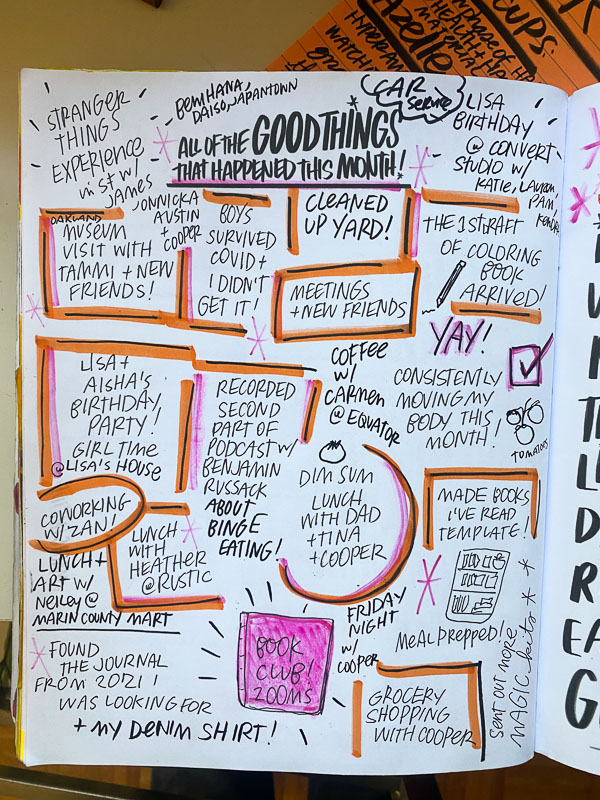 CUPS.
AZelle
HEALTH + HA
MATERIA
WATCH
STRANGER
THINGS
EXPERIENCE
in SF w/
JAMES
BEMIHANA,
DAISO, JAPANTOWN
CAR
SERVICE
LISA
BIRTHDAY
@ CONVERT
STUDIO W/
KATIE, LAUREN,
PAM,
ALL OF THE GOOD THINGS
THAT HAPPENED THIS MONTH!
OAKLAND
MUSEUM
VISIT WITH
TAMMI + NEW
FRIENDS!
ONNICKA
AUSTIN
+
COOPER
BOYS
SURVIVED
COVID +
I DIDN'T
GET IT!
CLEANED
UP YARD!
THE 1ST DRAFT
OF COLORING
BOOK
ARRIVED!
YAY!
MEETINGS
+ NEW FRIENDS
LISA +
AISHA'S
BIRTHDAY
PARTY!
GIRL TIME
@ LISA'S HOUSE
RECORDED
SECOND
PART OF
PODCAST W/
BENJAMIN
RUSSACK
ABOUT
BINGE
EATING!
COFFEE
W/
CARMEN
@ EQUATOR
CONSISTENTLY
MOVING MY
BODY THIS
MONTH!
TOMATOES
COWORKING
W/ ZAN!
LUNCH
WITH
HEATHER
@ RUSTIC
DIM SUM
LUNCH
WITH DAD
+ TINA
+ COOPER
MADE BOOKS
I'VE READ
TEMPLATE!
LUNCH +
ART W/
NEILEY @
MARIN COUNTY MART
FOUND
THE JOURNAL
FROM 2021 I
WAS LOOKING FOR
+ MY DENIM SHIRT!
BOOK
CLUB!
ZOOMS
FRIDAY
NIGHT
W/
COOPER
MEAL PREPPED!
GROCERY
SHOPPING
WITH COOPER
SENT OUT MORE
MAGIC